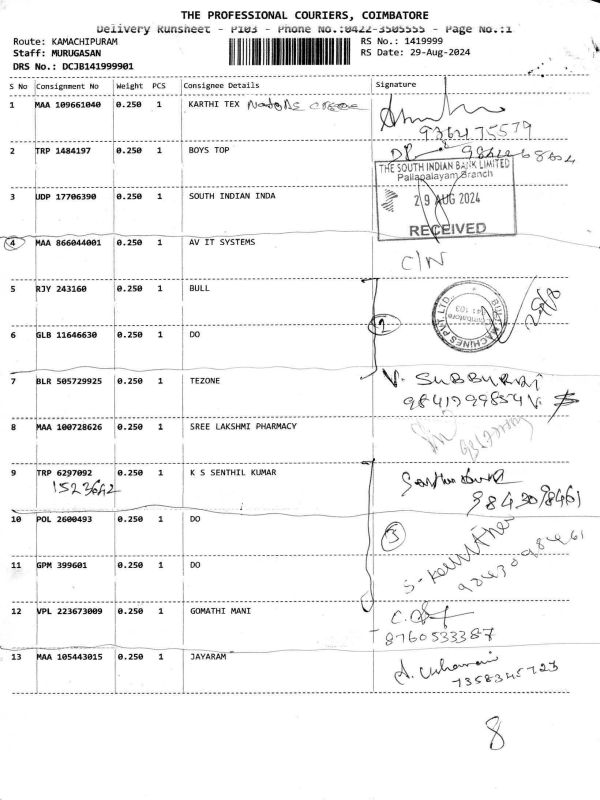 THE PROFESSIONAL COURIERS, COIMBATORE
Delivery Runsheet - P103 - Phone No.:0422-3505555 - Page No.:1
Route: KAMACHIPURAM
RS No.: 1419999
Staff: MURUGASAN
RS Date: 29-Aug-2024
DRS No.: DCJB141999901
S No Consignment No Weight PCS Consignee Details Signature
1 MAA 109661040 0.250 1 KARTHI TEX
9364475579
2 TRP 1484197 0.250 1 BOYS TOP
THE SOUTH INDIAN BANK LIMITED
Pallapalayam Branch
3 UDP 17706390 0.250 1 SOUTH INDIAN INDA
29 AUG 2024
RECEIVED
4 MAA 866044001 0.250 1 AV IT SYSTEMS
C/N
5 RJY 243160 0.250 1 BULL
BULL MACHINES PVT. LTD.
Coimbatore
641 103
29/8
2
6 GLB 11646630 0.250 1 DO
7 BLR 505729925 0.250 1 TEZONE
V. SUBBURAJ
9841799854
8 MAA 100728626 0.250 1 SREE LAKSHMI PHARMACY
9 TRP 6297092 0.250 1 K S SENTHIL KUMAR
1523642
9843098461
10 POL 2600493 0.250 1 DO
3
11 GPM 399601 0.250 1 DO
9843098461
12 VPL 223673009 0.250 1 GOMATHI MANI
8760533387
13 MAA 105443015 0.250 1 JAYARAM
7358345723
8